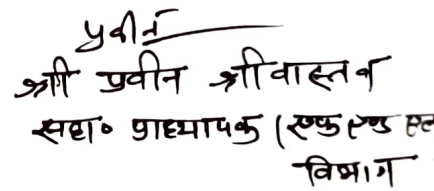 प्रवीन
श्री प्रवीन श्रीवास्तव
सहा० प्राध्यापक (एफ एण्ड एल
विभाग